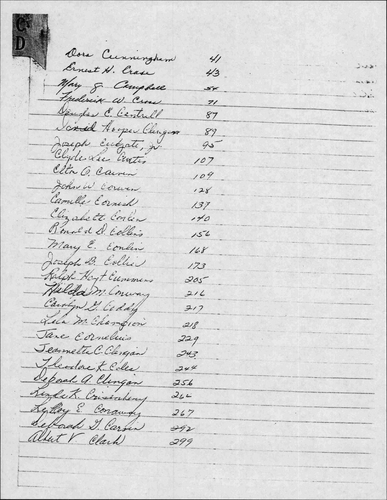 C
D
Dora Cunningham 41
Ernest H. Crase 43
Mary J. Campbell
Frederick W. Cross 71
Douglas C. Cantrell 87
Hooper Clingan 89
Joseph Cudgate, Jr. 95
Clyde Lee 107
109
John W. 128
Camille Cornish 137
Elizabeth Conlin 140
Ronald D. Collins 156
Mary E. Conlin 168
Joseph B. Collie 173
Ralph Hoyt Cummins 205
Hulda M. Conway 216
Carolyn G. Coddy 217
Lula M. Champion 218
Jane Cornelius 229
Jeannette C. Clingan 243
Theodore K. Coles 244
Deborah A. Clingan 256
Linda K. 266
E. Conaway 267
Deborah G. Carson 292
Albert V. Clark 299